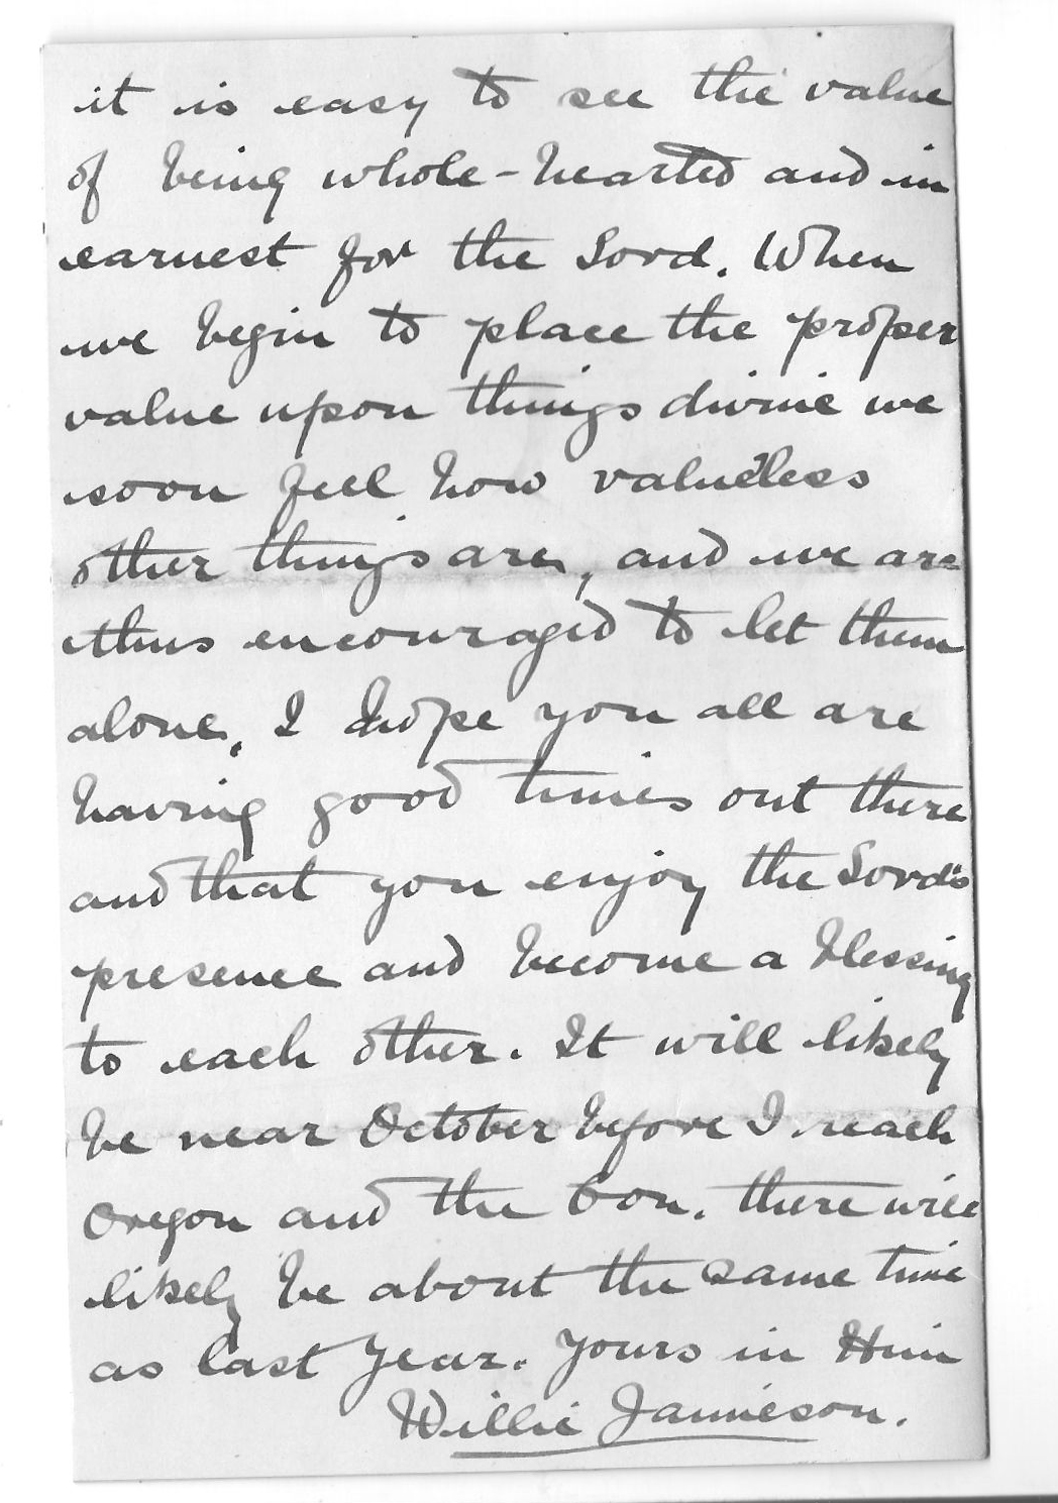 it is easy to see the value
of being whole-hearted and in
earnest for the Lord. When
we begin to place the proper
value upon things divine we
soon feel how valueless
other things are, and we are
thus encouraged to let them
alone. I hope you all are
having good times out there
and that you enjoy the Lord's
presence and become a blessing
to each other. It will likely
be near October before I reach
Oregon and the Con. there will
likely be about the same time
as last year. Yours in Him
Willie Jamieson.